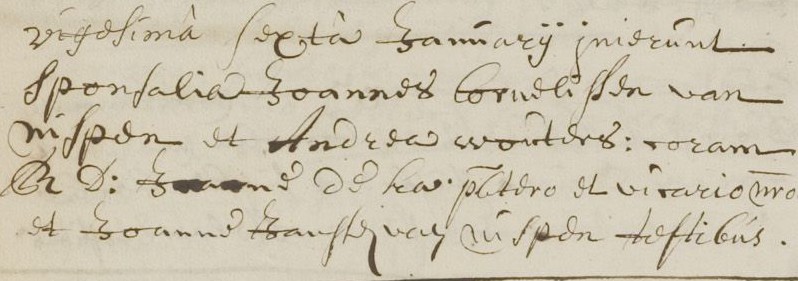 vigesimâ sextâ Januarÿ jnierunt
sponsalia Joannes Cornelissen van
nispen et Andrea wouters: coram
R D: Joanne de pbtero et vicario nro
et Joanne Jansen van nispen testibus.